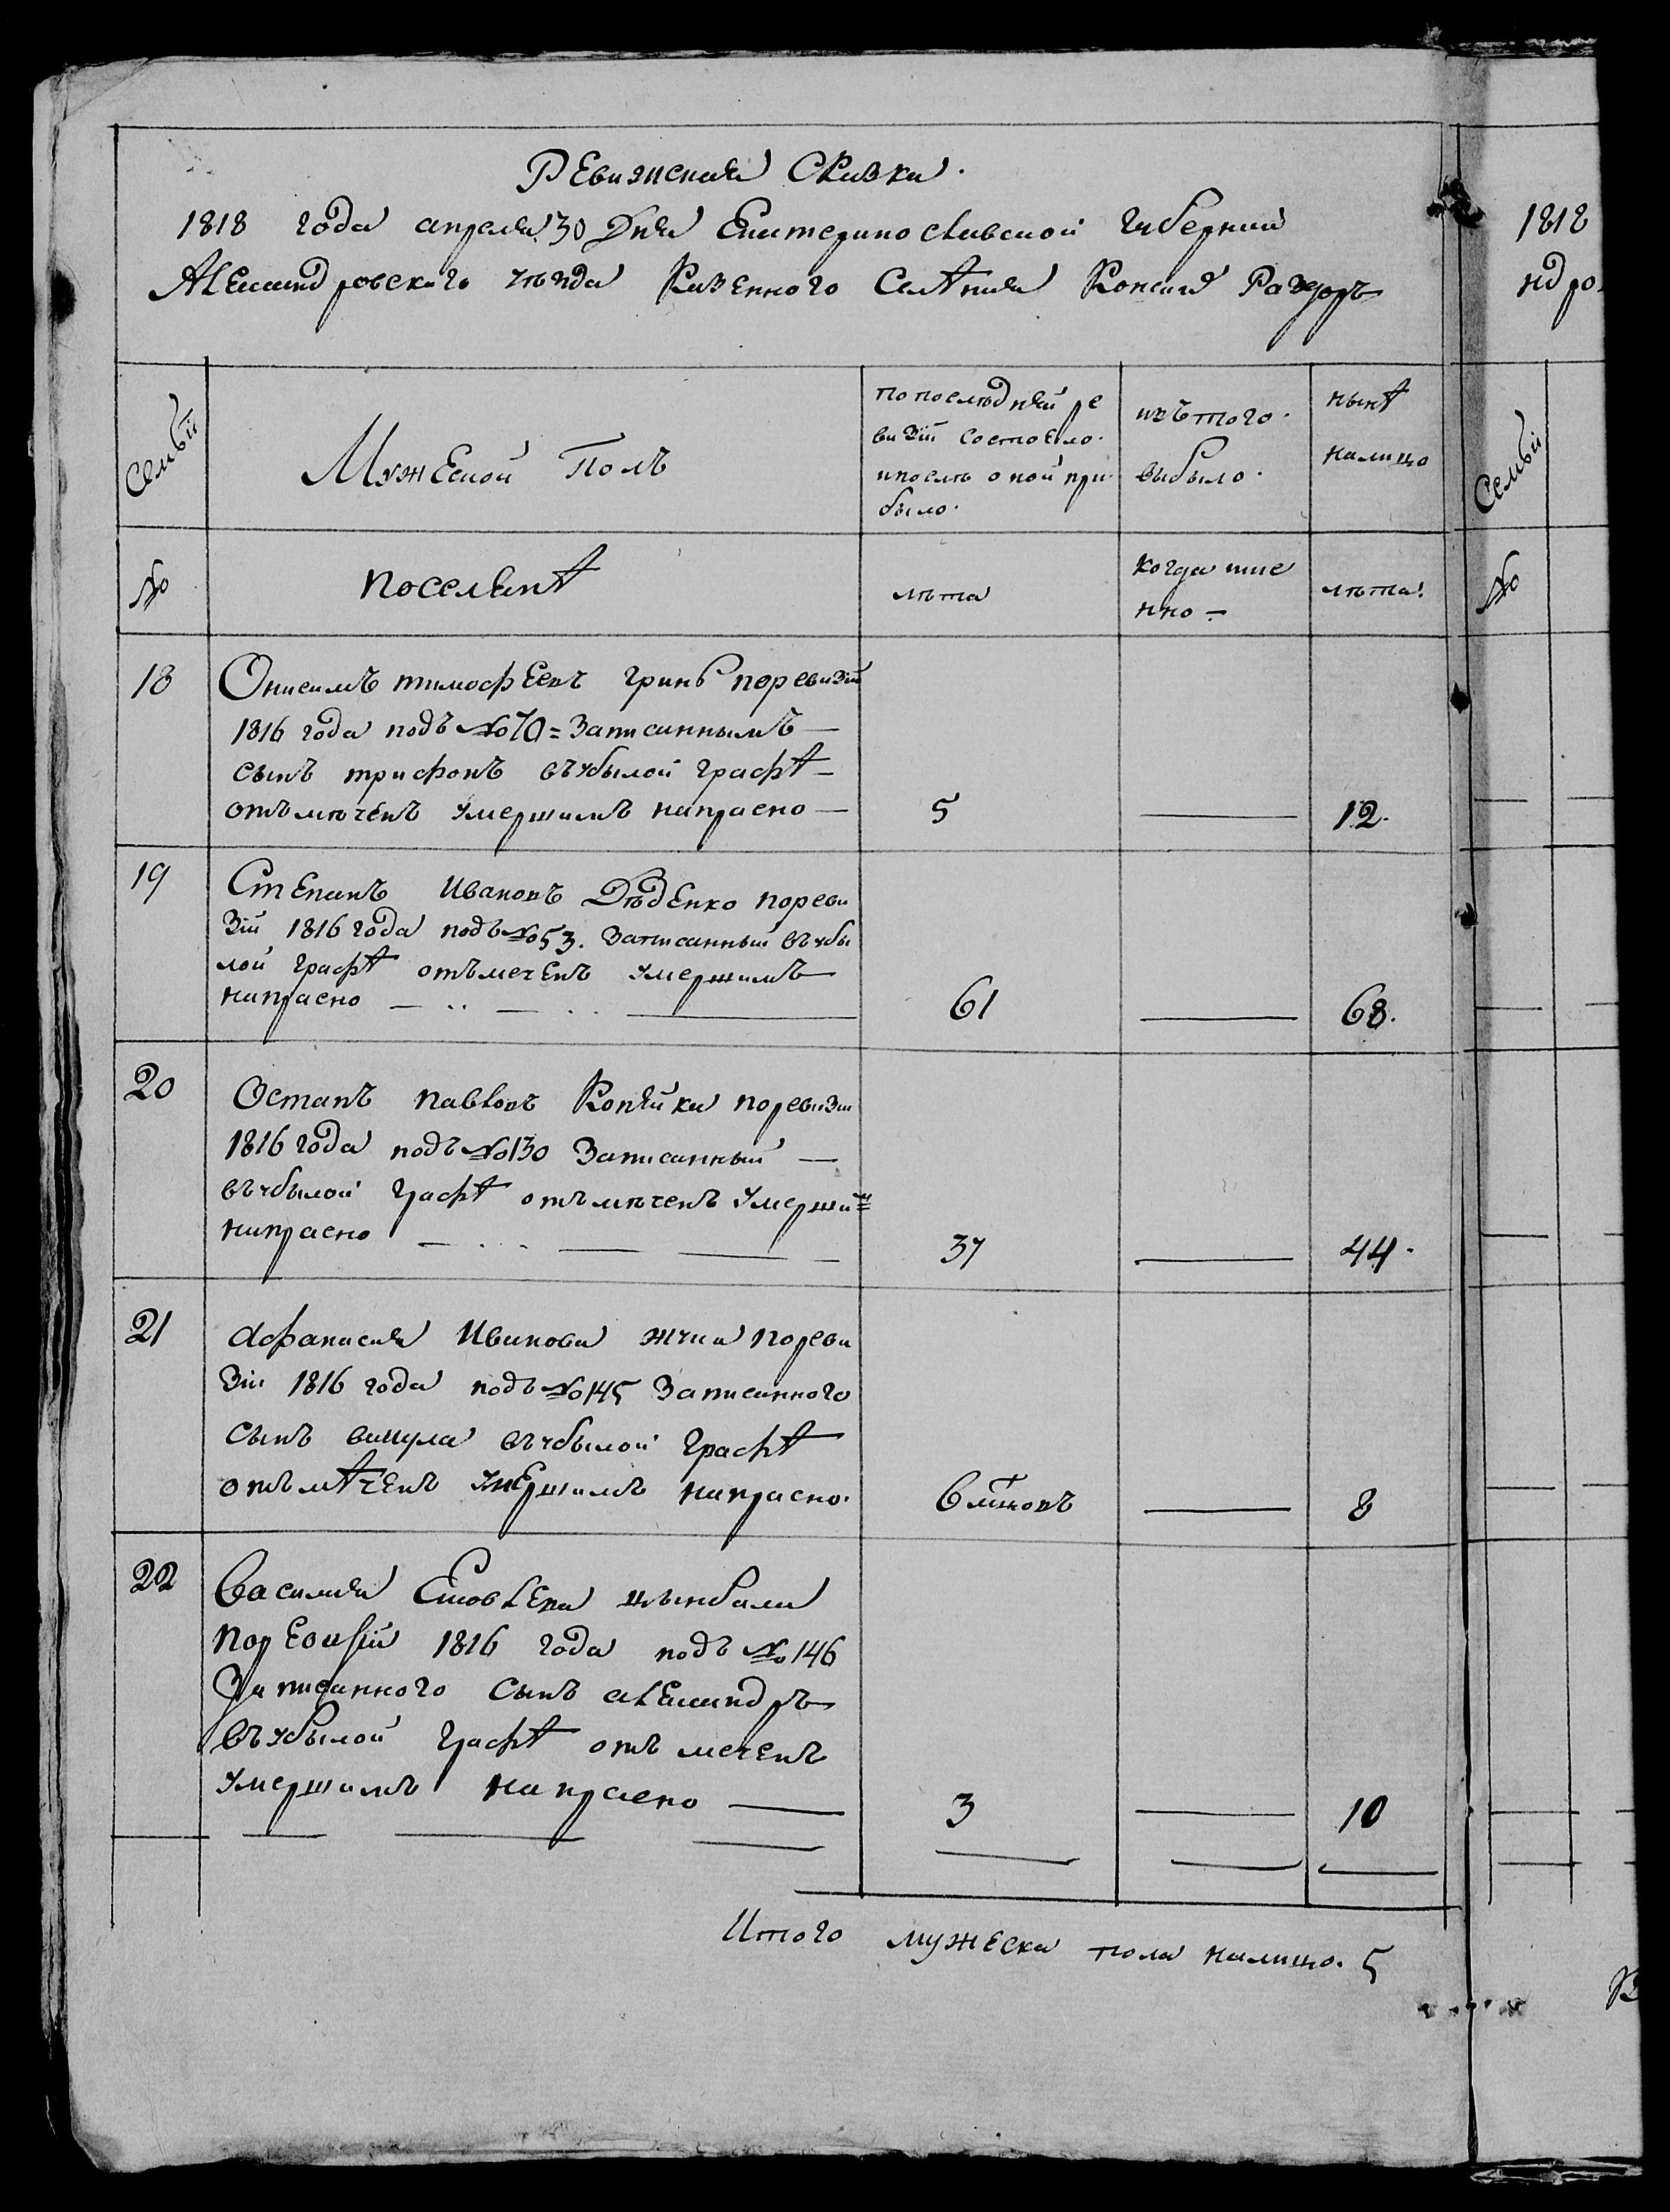 Ревижская Сказка.
1818 года апреля 30 Дня Екатеринославской губернии
Александровского уѣзда Казенного Селѣния Конския Раздоръ
Семьи
Мужеской Полъ
по последней ре
визіи состояло.
и после оной при
было.
изъ того.
выбыло.
нынѣ
налицо
№
поселянѣ
лѣта
когда име
нно —
лѣта.
18
Онисимъ тимофеевъ гринь поревизіи
1816 года подъ № 70 = Записаннымъ —
сынъ трифонъ въ убылой графѣ —
отъмѣченъ умершимъ напрасно —
5
12.
19
Степанъ Ивановъ Дѣденко мореви
зіи 1816 года подъ № 53. Записанный въ убы
лой графѣ отъмеченъ умершимъ
напрасно
61
68.
20
Остапъ павловъ Копѣйка поревизіи
1816 года подъ № 130 Записанный —
въ убылой графѣ отъмѣченъ умершим=
напрасно
37
44.
21
Афанасия Иванова пореви
зіи 1816 года подъ № 145 Записанного
сынъ вакула въ убылой графѣ
отъмѣченъ умершимъ напрасно.
8
22
Василия Яковлева цынбала
поревизіи 1816 года подъ № 146
Записанного сынъ александръ
въ убылой графѣ отъ меченъ
умершимъ напрасно
3
10
Итого мужеска пола налицо. 5
1818
ндро
Семьи
№